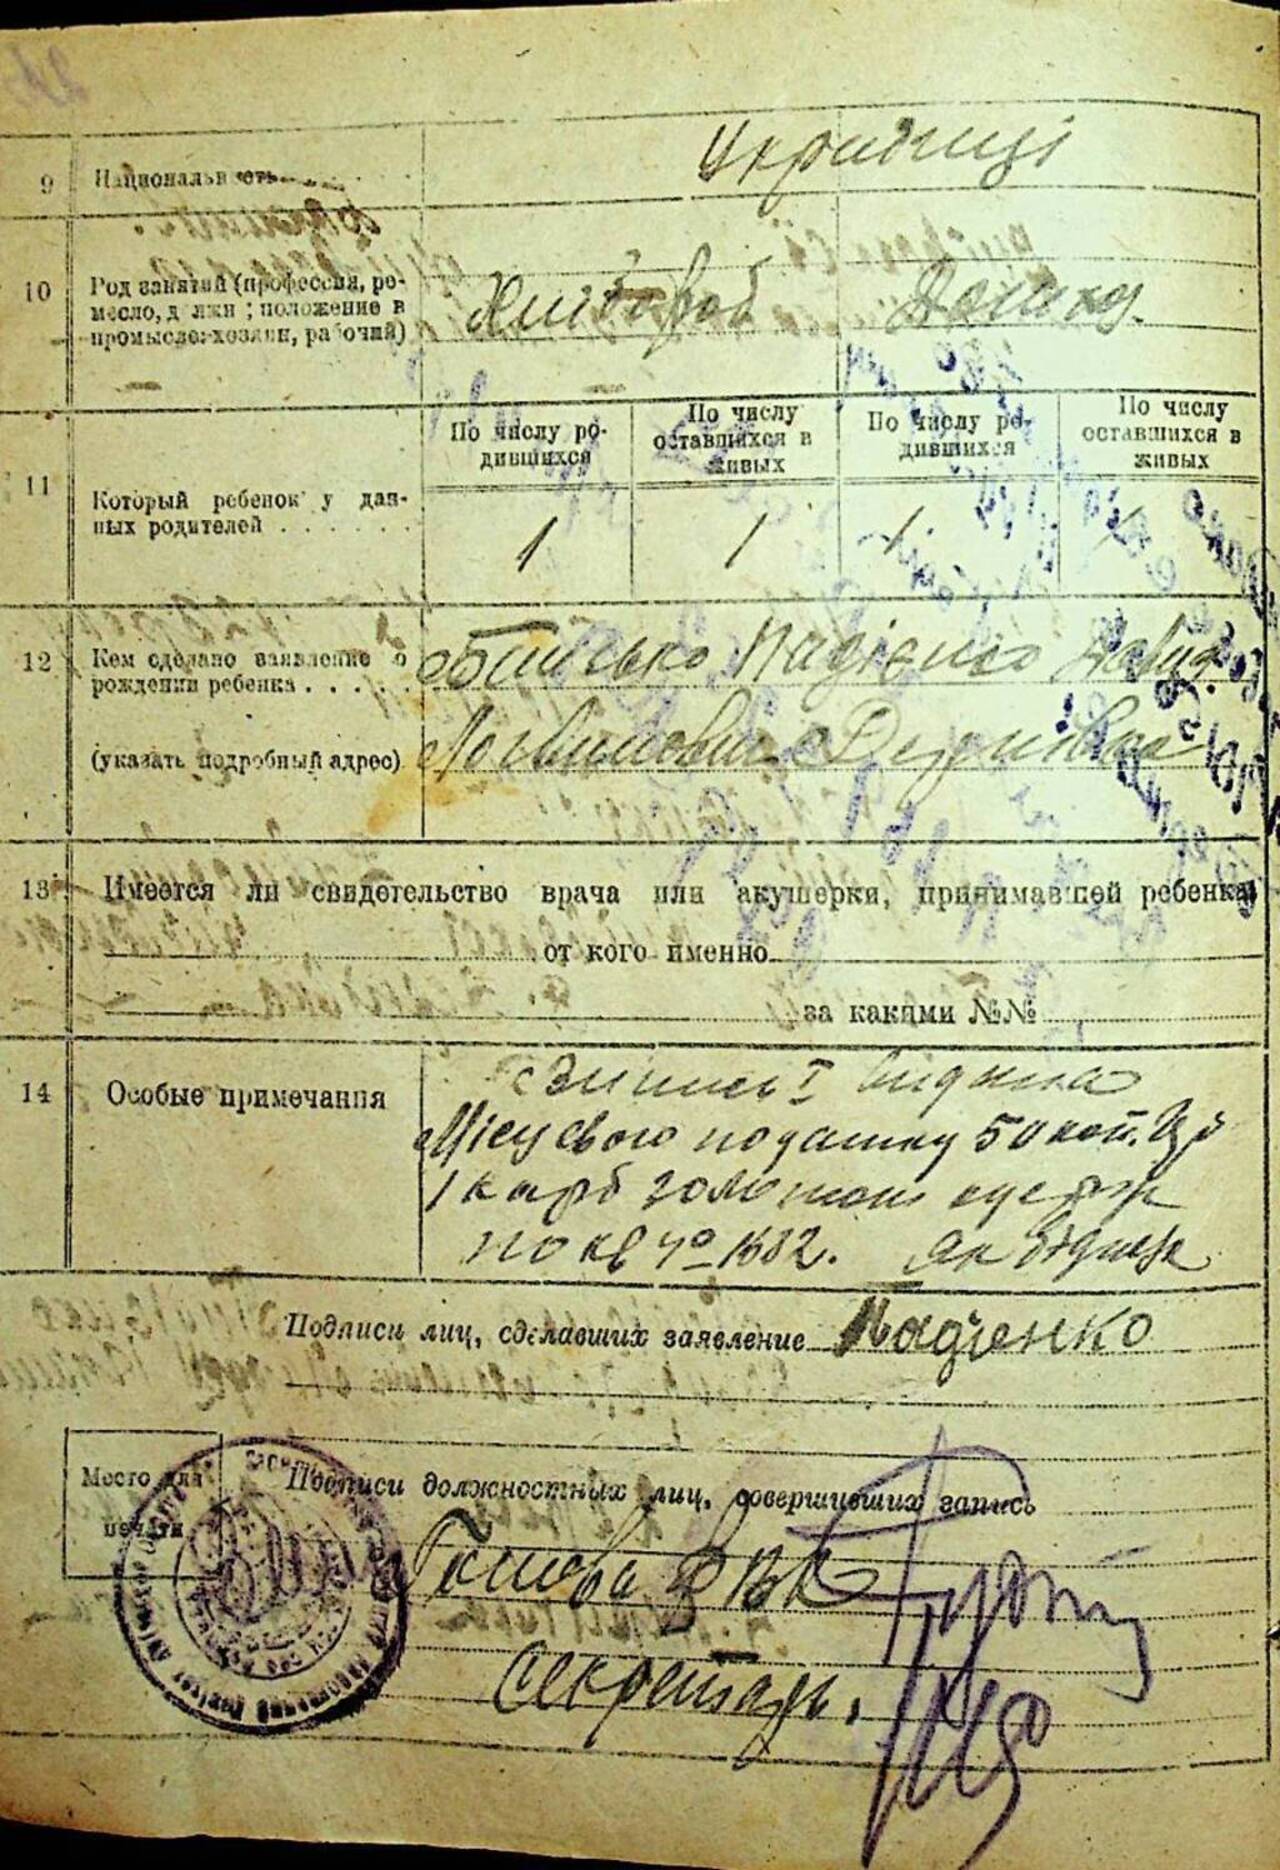 9 Национальность
Українці
10 Род занятий (профессия, ре-
месло, должн; положение в
промысле: хозяин, рабочий)
Хлібороб Домаш.
11 Который ребенок у дан-
ных родителей
По числу ро-
дившихся
По числу
оставшихся в
живых
По числу ро-
дившихся
По числу
оставшихся в
живых
1 1 1 1
12 Кем сделано заявление о
рождении ребенка
(указать подробный адрес)
Батько Надієнко
13 Имеется ли свидетельство врача или акушерки, принимавшей ребенка
от кого именно
за какими №№
14 Особые примечания
Випись I видана
Місцевого податку 50 коп.
1 карб золотом одерж
по кв № 1682.
Подписи лиц, сделавших заявление Надіенко
Место для
печати
Подписи должностных лиц, совершивших запись
Голова РВК
Секретарь.